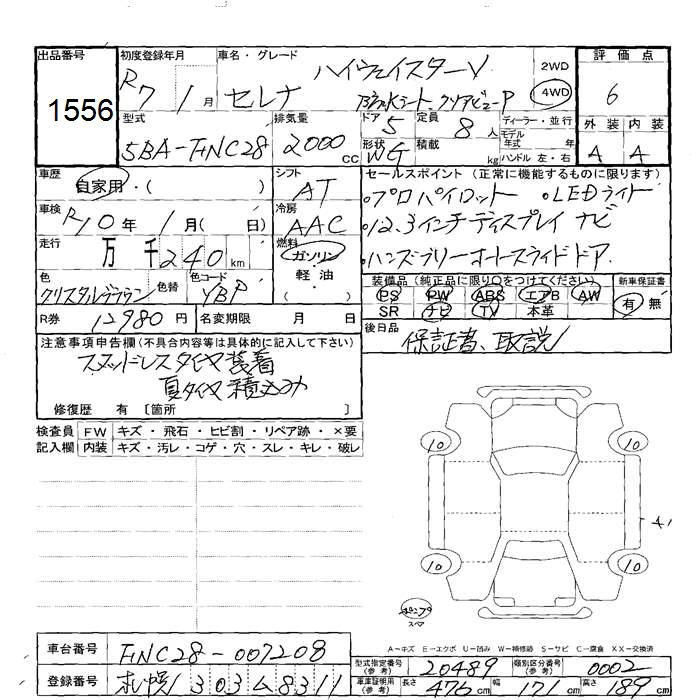 出品番号
1556
初度登録年月
R7 1月
車名・グレード
ハイウェイスターV
セレナ 防水シート、クリアビューP
2WD
4WD
評価点
6
外装 内装
A A
型式
5BA-FNC28
排気量
2000cc
ドア
5
定員
8人
形状
WG
積載
kg
ディーラー・並行
モデル年式 年
ハンドル 左・右
車歴
自家用・( )
シフト
AT
セールスポイント(正常に機能するものに限ります)
・プロパイロット ・LEDライト
・12.3インチディスプレイ ナビ
・ハンズフリーオートスライドドア
車検
R10年1月( 日)
冷房
AAC
走行
万千240km
燃料
ガソリン
軽油
( )
色
クリスタルブラウン
色替
色コード
YBP
装備品(純正品に限り○をつけてください)
PS PW ABS エアB AW
SR ナビ TV 本革
新車保証書
有 無
R券
12980円
名変期限 月 日
後日品
保証書、取説
注意事項申告欄(不具合内容等は具体的に記入して下さい)
スタッドレスタイヤ装着
夏タイヤ積込み
修復歴 有〔箇所 〕
検査員記入欄
FW キズ・飛石・ヒビ割・リペア跡・×要
内装 キズ・汚レ・コゲ・穴・スレ・キレ・破レ
10 10
A1
10 10
ポンプ
スペア
A−キズ E−エクボ U−凹み W−補修跡 S−サビ C−腐食 XX−交換済
車台番号
FNC28-007208
登録番号
札幌 303 ム 8311
型式指定番号(参考)
20489
類別区分番号(参考)
0002
車庫証明用(参考)
長さ 476cm 幅 171cm 高さ 189cm